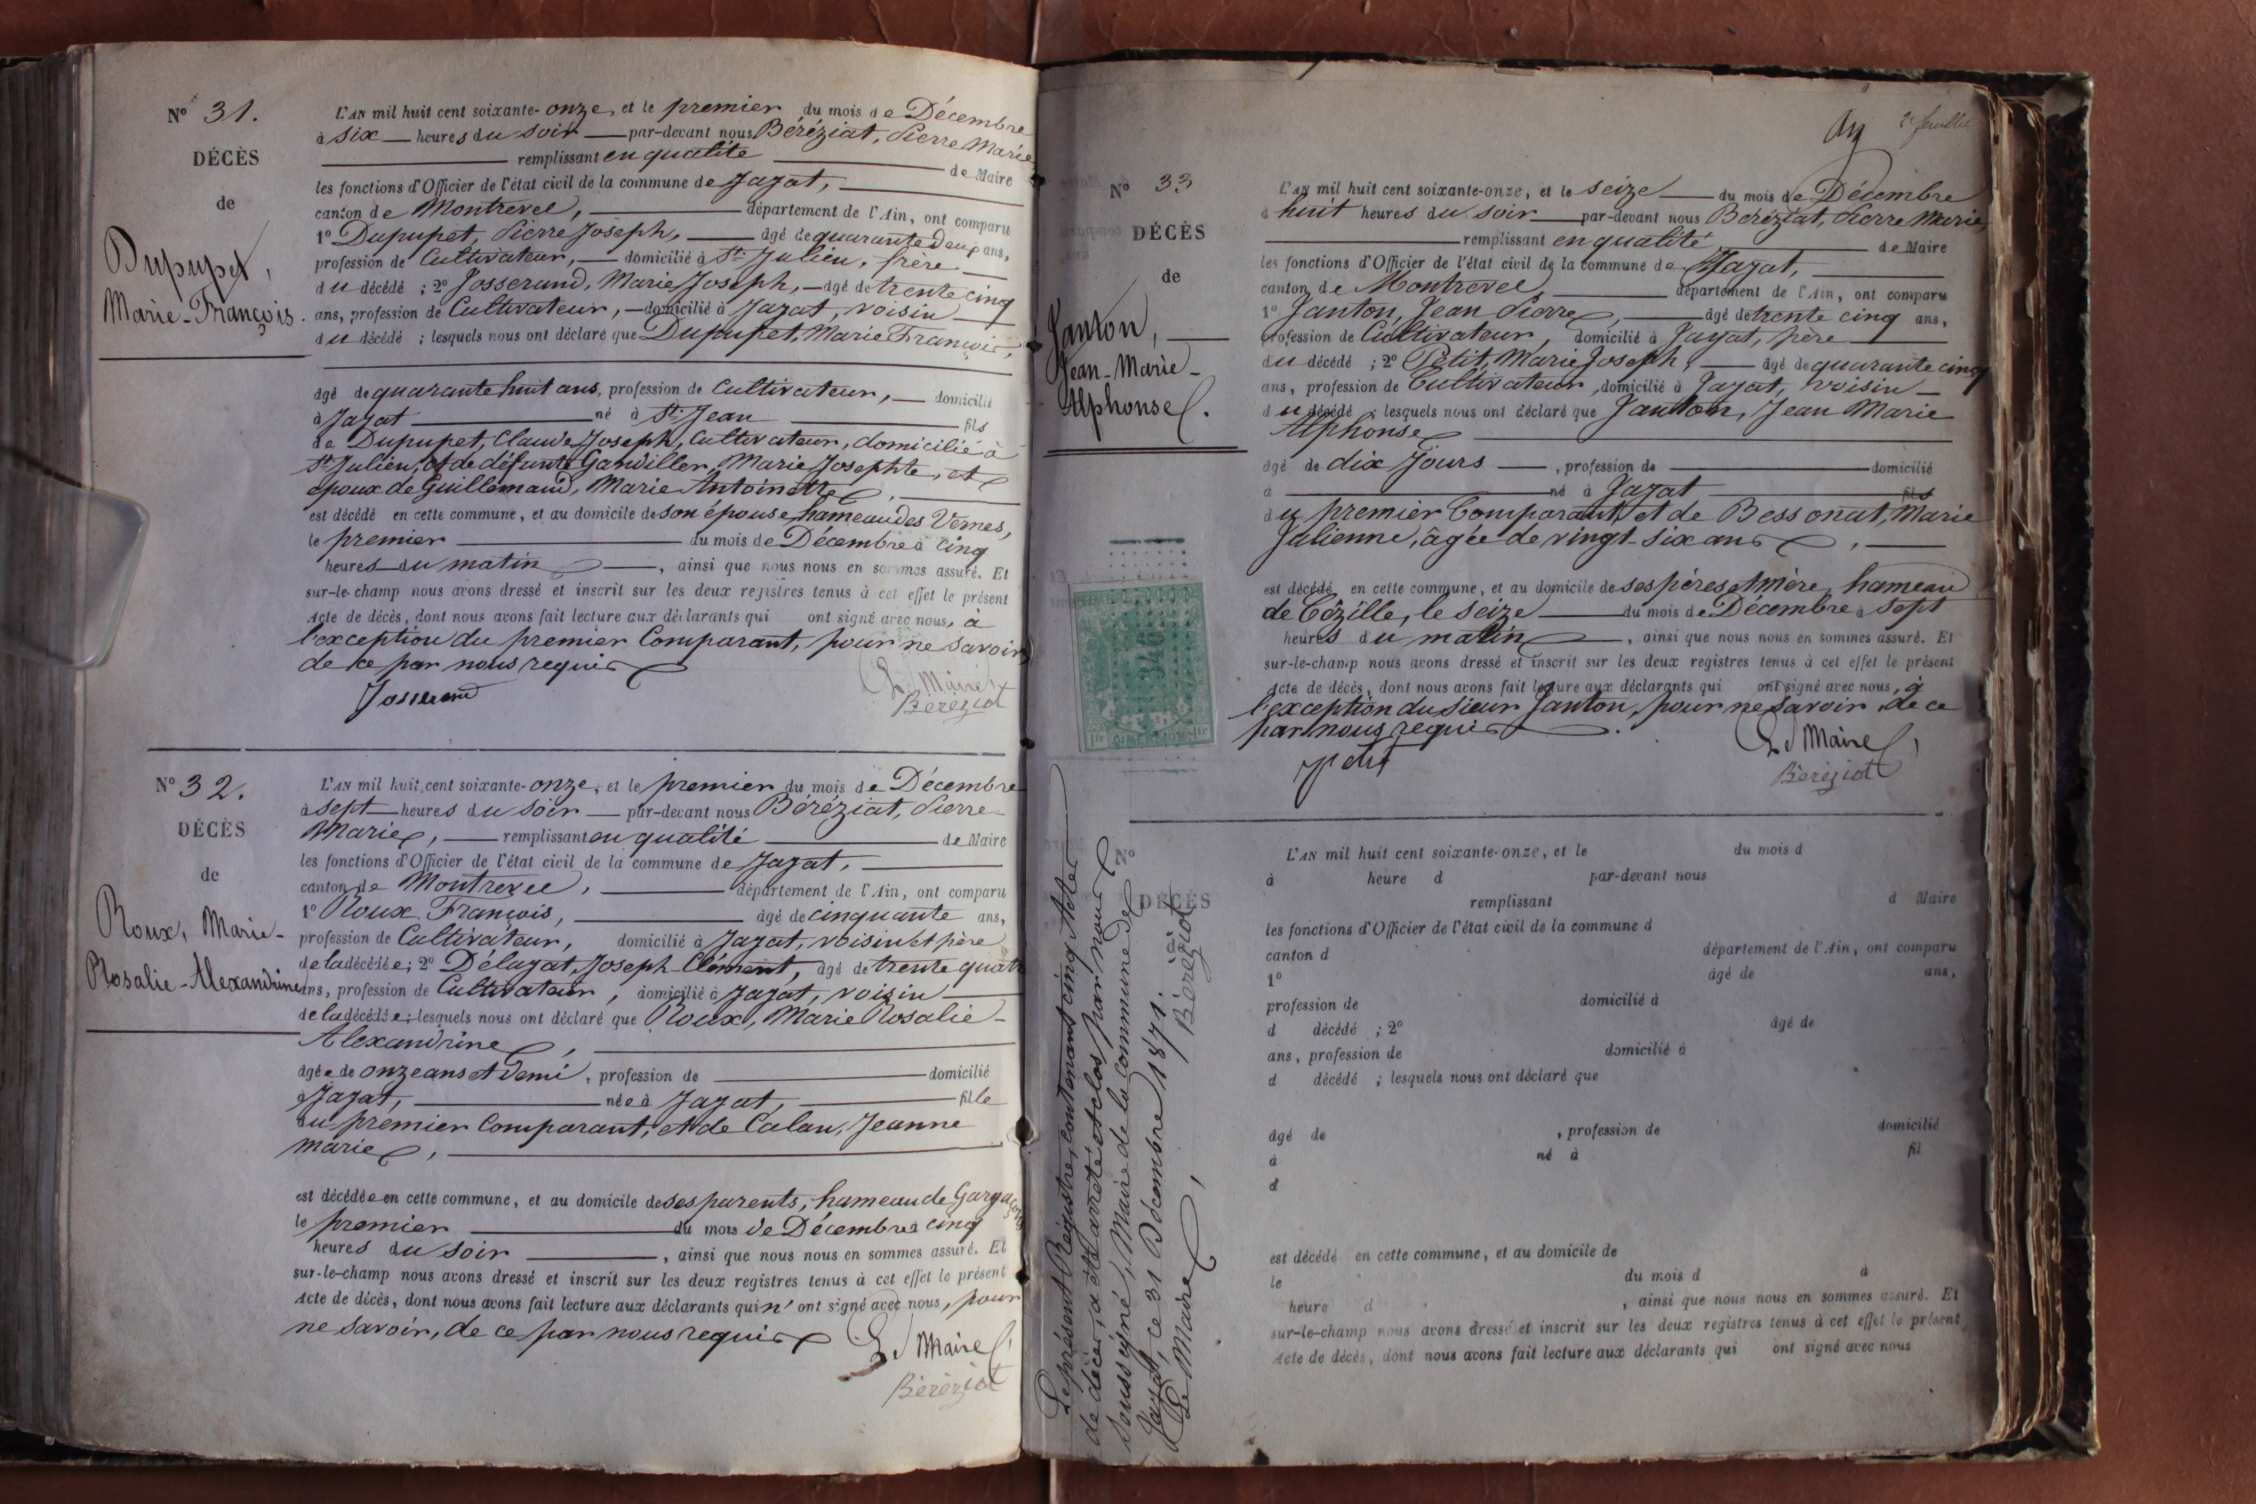 N° 31.
DÉCÈS
de
Dupupet,
Marie-François.
L'AN mil huit cent soixante-onze, et le premier du mois de Décembre
à six heures du soir par-devant nous Béréziat, Pierre Marie
remplissant en qualité de Maire
les fonctions d'Officier de l'état civil de la commune de Jayat,
canton de Montrevel, département de l'Ain, ont comparu
1° Dupupet, Pierre Joseph, âgé de quarante deux ans,
profession de Cultivateur, domicilié à St Julien, frère
du décédé ; 2° Josserand, Marie Joseph, âgé de trente cinq
ans, profession de Cultivateur, domicilié à Jayat, voisin
du décédé ; lesquels nous ont déclaré que Dupupet, Marie François,
âgé de quarante huit ans, profession de Cultivateur, domicilié
à Jayat né à St Jean fils
de Dupupet, Claude Joseph, Cultivateur, domicilié à
St Julien, et de défunte Gandiller, Marie Josephte, et
époux de Guillemaud, Marie Antoinette,
est décédé en cette commune, et au domicile de son épouse, hameau des Vernes,
le premier du mois de Décembre à cinq
heures du matin, ainsi que nous nous en sommes assuré. Et
sur-le-champ nous avons dressé et inscrit sur les deux registres tenus à cet effet le présent
Acte de décès, dont nous avons fait lecture aux déclarants qui ont signé avec nous, à
l'exception du premier Comparant, pour ne savoir
de ce par nous requis
Josserand
Le Maire,
Béréziat
N° 32.
DÉCÈS
de
Roux, Marie-
Rosalie-Alexandrine
L'AN mil huit cent soixante-onze, et le premier du mois de Décembre
à sept heures du soir par-devant nous Béréziat, Pierre
Marie, remplissant en qualité de Maire
les fonctions d'Officier de l'état civil de la commune de Jayat,
canton de Montrevel, département de l'Ain, ont comparu
1° Roux, François, âgé de cinquante ans,
profession de Cultivateur, domicilié à Jayat, voisin et père
de la décédée ; 2° Délayat, Joseph-Clément, âgé de trente quatre
ans, profession de Cultivateur, domicilié à Jayat, voisin
de la décédée ; lesquels nous ont déclaré que Roux, Marie Rosalie-
Alexandrine,
âgée de onze ans et demi, profession de domicilié
à Jayat, née à Jayat, fille
du premier Comparant, et de Calan, Jeanne
Marie,
est décédée en cette commune, et au domicile de ses parents, hameau de
le premier du mois de Décembre à cinq
heures du soir, ainsi que nous nous en sommes assuré. Et
sur-le-champ nous avons dressé et inscrit sur les deux registres tenus à cet effet le présent
Acte de décès, dont nous avons fait lecture aux déclarants qui n'ont signé avec nous, pour
ne savoir, de ce par nous requis
Le Maire,
Béréziat
N° 33
DÉCÈS
de
Janton,
Jean-Marie-
Alphonse.
L'AN mil huit cent soixante-onze, et le seize du mois de Décembre
à huit heures du soir par-devant nous Béréziat, Pierre Marie,
remplissant en qualité de Maire
les fonctions d'Officier de l'état civil de la commune de Jayat,
canton de Montrevel, département de l'Ain, ont comparu
1° Janton, Jean Pierre, âgé de trente cinq ans,
profession de Cultivateur, domicilié à Jayat, père
du décédé ; 2° Petit, Marie Joseph, âgé de quarante cinq
ans, profession de Cultivateur, domicilié à Jayat, voisin
du décédé ; lesquels nous ont déclaré que Janton, Jean Marie
Alphonse
âgé de dix jours, profession de domicilié
à né à Jayat fils
du premier Comparant, et de Bessonat, Marie
Julienne, âgée de vingt-six ans,
est décédé en cette commune, et au domicile de ses père et mère, hameau
de Cézille, le seize du mois de Décembre à sept
heures du matin, ainsi que nous nous en sommes assuré. Et
sur-le-champ nous avons dressé et inscrit sur les deux registres tenus à cet effet le présent
Acte de décès, dont nous avons fait lecture aux déclarants qui ont signé avec nous, à
l'exception du sieur Janton, pour ne savoir, de ce
par nous requis.
Petit
Le Maire,
Béréziat
346
N°
DÉCÈS
de
L'AN mil huit cent soixante-onze, et le du mois d
à heure d par-devant nous
remplissant d Maire
les fonctions d'Officier de l'état civil de la commune d
canton d département de l'Ain, ont comparu
1° âgé de ans,
profession de domicilié à
d décédé ; 2° âgé de
ans, profession de domicilié à
d décédé ; lesquels nous ont déclaré que
âgé de , profession de domicilié
à né à fil
d
est décédé en cette commune, et au domicile de
le du mois d à
heure d , ainsi que nous nous en sommes assuré. Et
sur-le-champ nous avons dressé et inscrit sur les deux registres tenus à cet effet le présent
Acte de décès, dont nous avons fait lecture aux déclarants qui ont signé avec nous
Le présent Régistre, contenant cinq Actes
de décès, a été arrêté et clos par nous
soussigné, Maire de la commune de
Jayat, ce 31 Décembre 1871.
Le Maire,
Béréziat